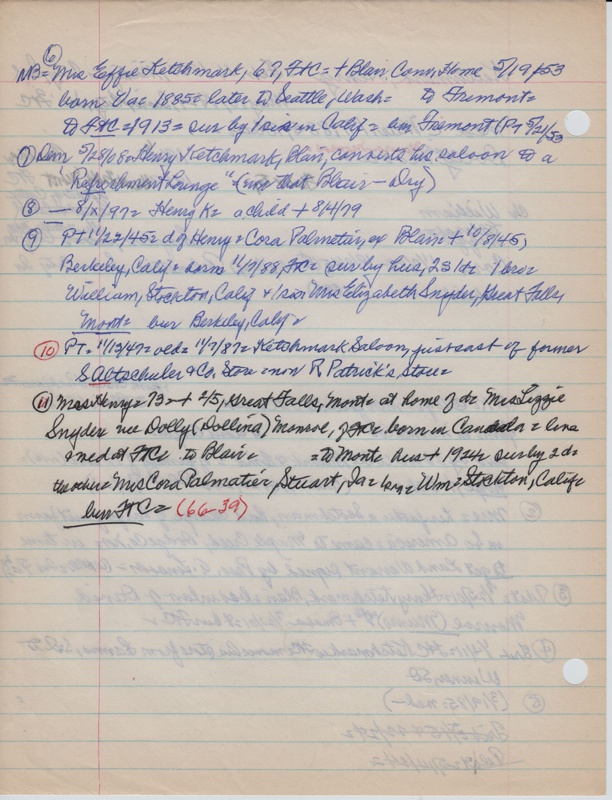 ⑥
NB= Mrs Effie Ketchmark, 67, Ft C= + Blair Conv, Home 5/19/53
born Va= 1885= later to Seattle, Wash= to Fremont=
to Ft C=1913= sur by 1 sis in Calif= bur Fremont (PT 5/21/53
⑦ Dem 5/28/08= Henry Ketchmark, Blair, converts his saloon to a
"Refreshment Lounge" (was that Blair - Dry)
⑧ — 8/x/97= Henry K= a child + 8/4/79
⑨ PT 11/22/45= d of Henry= Cora Palmatier, ex Blair + 10/8/45,
Berkeley, Calif= born 11/7/88, Ft C= sur by hus, 2s 1d= 1 bro=
William, Stockton, Calif & 1 sis= Mrs Elizabeth Snyder, Great Falls,
Mont= bur Berkeley, Calif=
⑩ PT= 11/13/47= old= 11/7/87= Ketchmark Saloon, just east of former
S Altschuler & Co, Store= now R Patrick's Store=
⑪ Mrs Henry= 73= + 2/5, Great Falls, Mont= at home of d= Mrs Lizzie
Snyder nee Dolly (Dollina) Monroe, of Ft C= born in Canada= live
& med at Ft C= to Blair= =to Mont= hus + 1924= sur by 2 d=
the other= Mrs Cora Palmatier, Stuart, Ia= Wm= Stockton, Calif=
bur Ft C= (66-39)